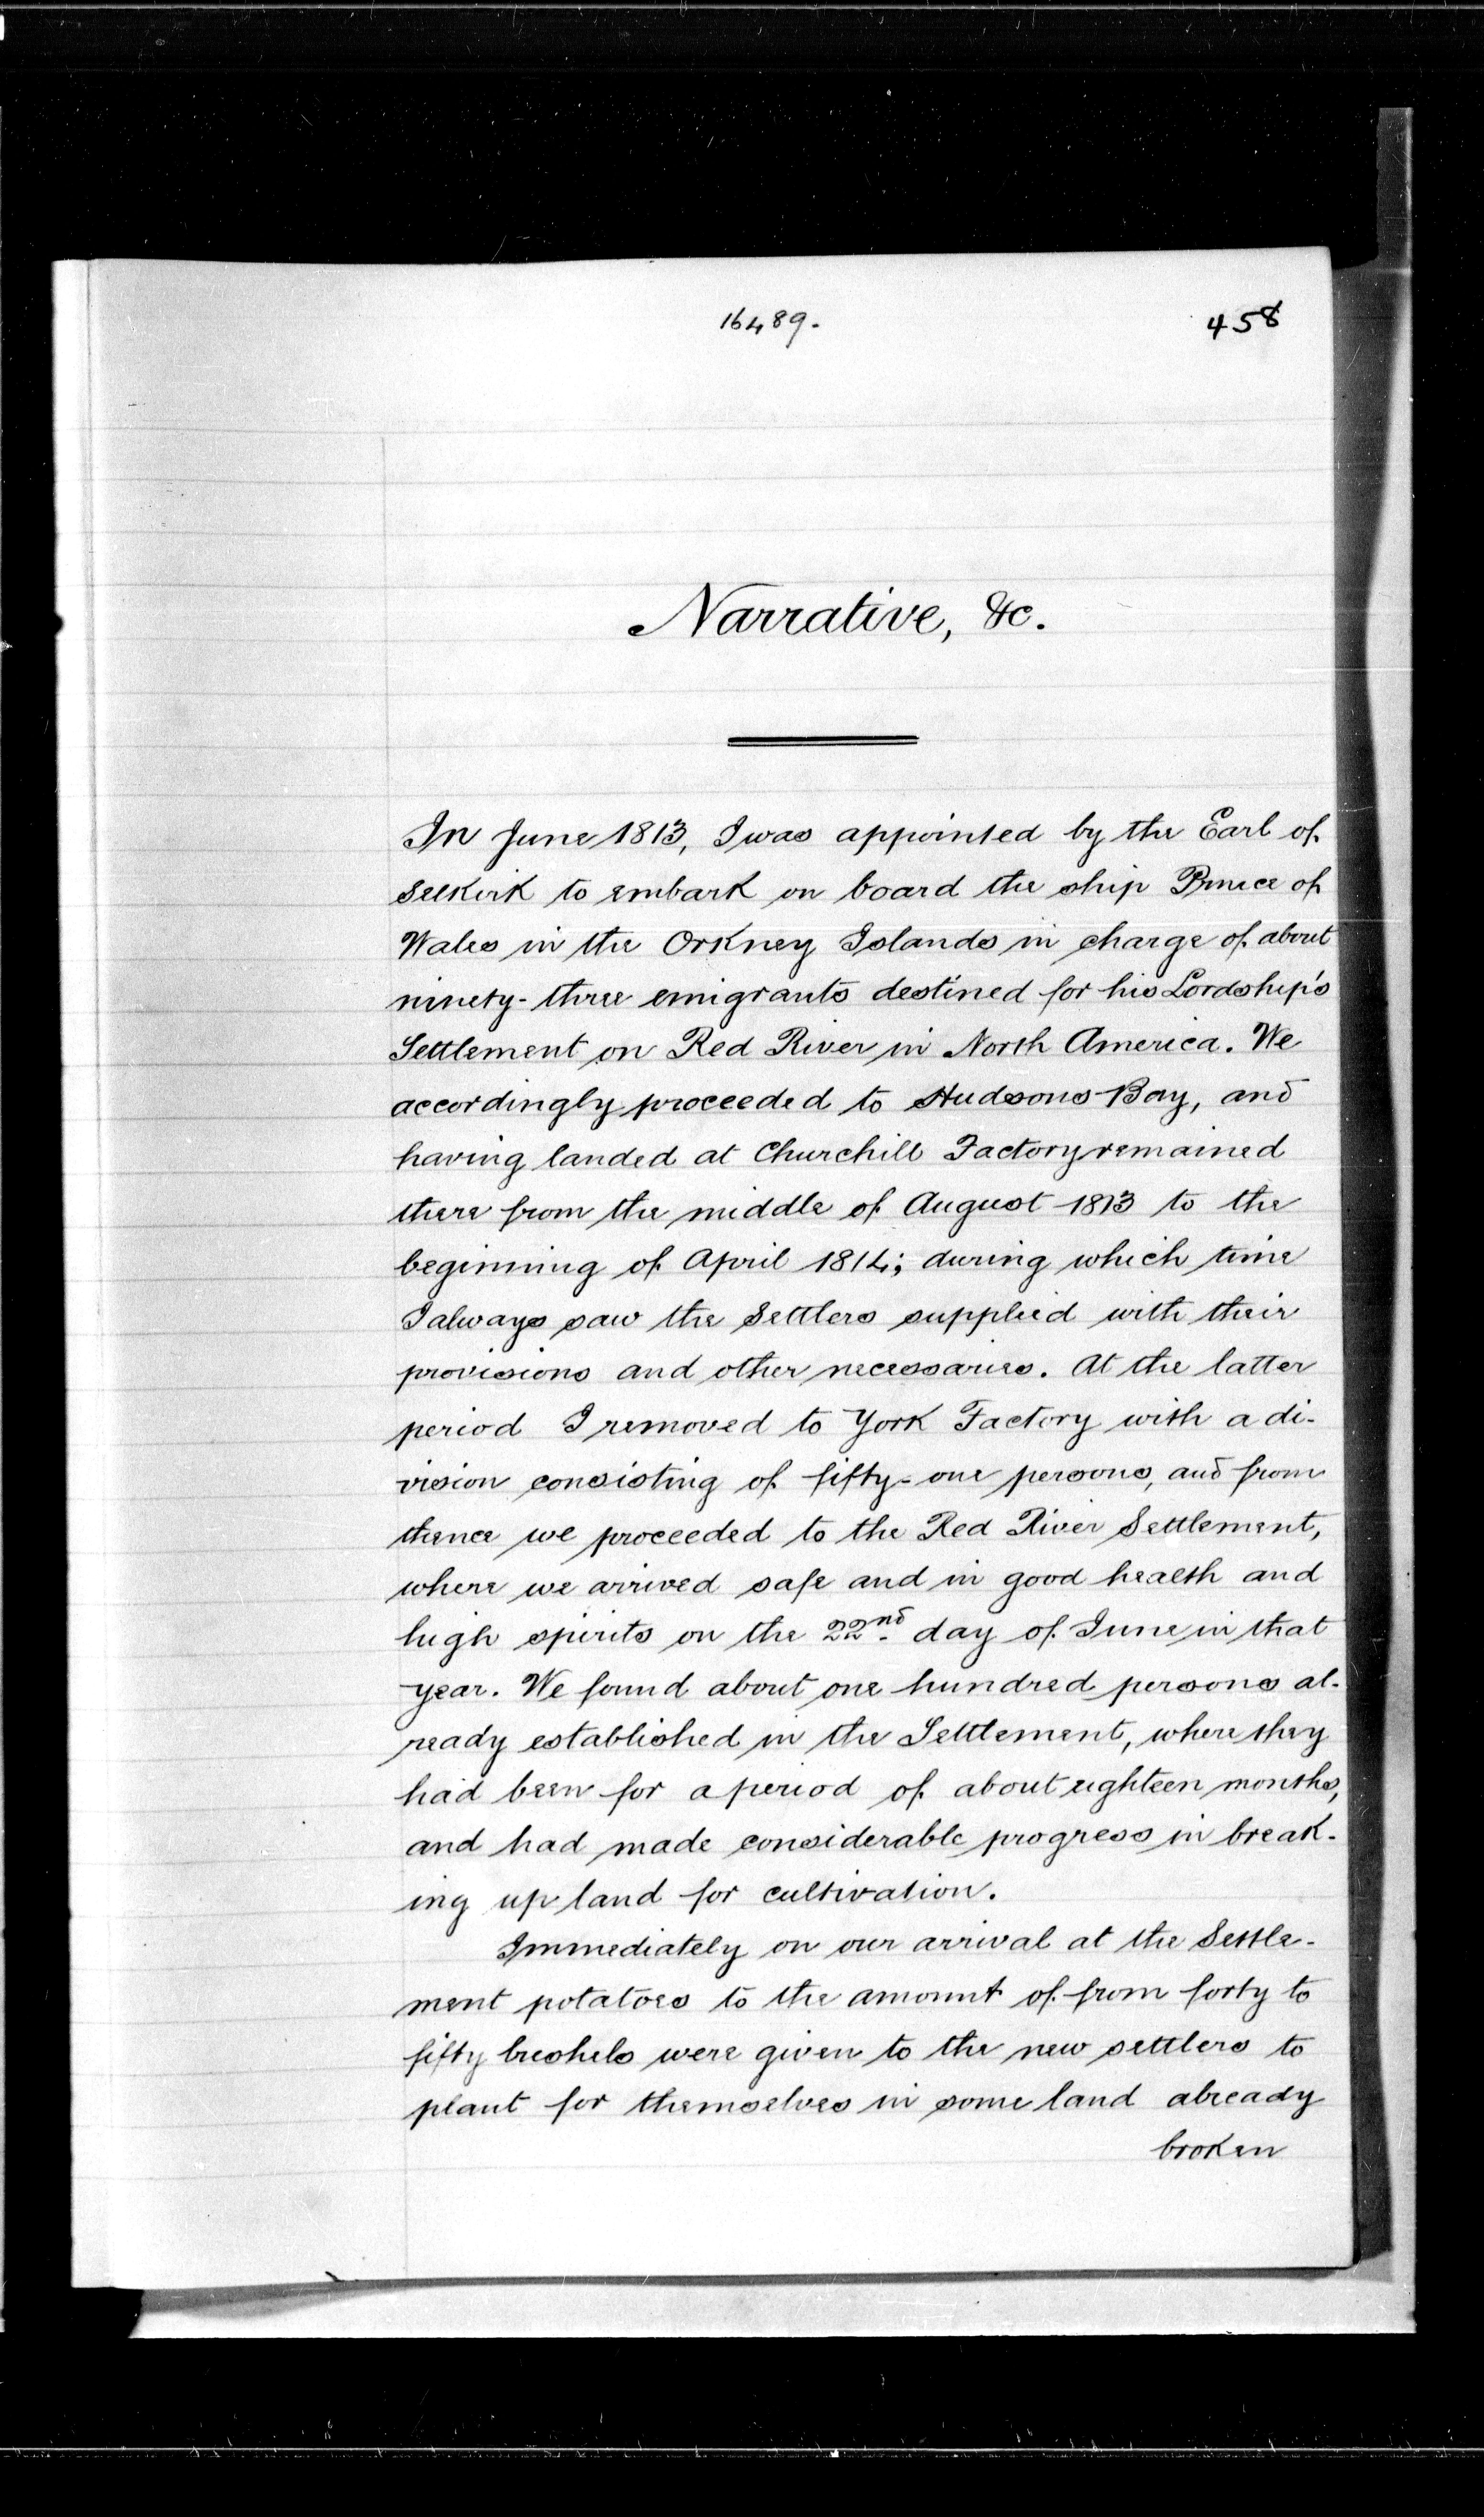 16489.
458
Narrative, &c.
In June 1813, I was appointed by the Earl of
Selkirk to embark on board the ship Prince of
Wales in the Orkney Islands in charge of about
ninety-three emigrants destined for his Lordship's
Settlement on Red River in North America. We
accordingly proceeded to Hudsons Bay, and
having landed at Churchill Factory remained
there from the middle of August 1813 to the
beginning of April 1814; during which time
I always saw the Settlers supplied with their
provisions and other necessaries. At the latter
period I removed to York Factory with a di-
vision consisting of fifty-one persons, and from
thence we proceeded to the Red River Settlement,
where we arrived safe and in good health and
high spirits on the 22nd day of June in that
year. We found about one hundred persons al-
ready established in the Settlement, where they
had been for a period of about eighteen months,
and had made considerable progress in break-
ing up land for cultivation.
Immediately on our arrival at the Settle-
ment potatoes to the amount of from forty to
fifty bushels were given to the new settlers to
plant for themselves in some land already
broken